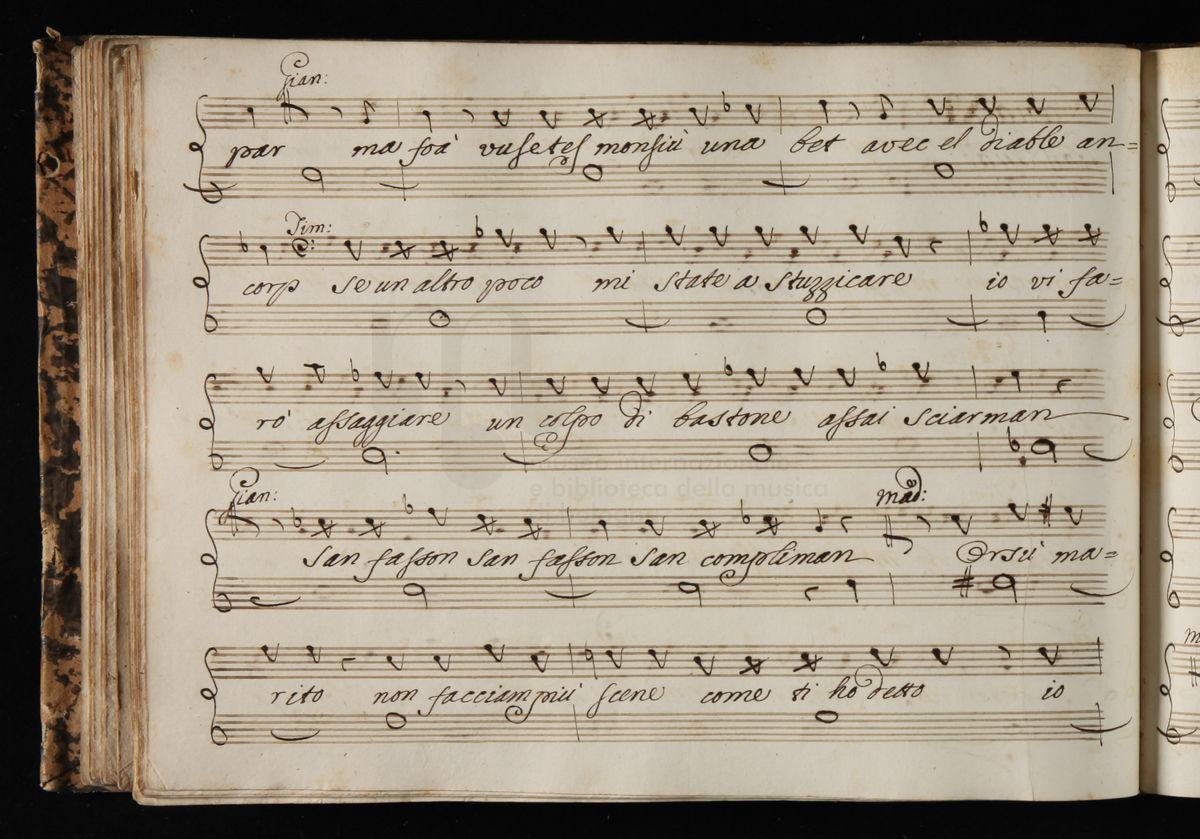 Gian:
par ma foà vu setes monsiù una bet avec el diable an=
Tim:
corp se un altro poco mi state a stuzzicare io vi fa=
rò assaggiare un colpo di bastone assai sciarman
e biblioteca della musica
Gian: mad:
san fasson san fasson san compliman Orsù ma=
rito non facciam più scene come ti ho detto io